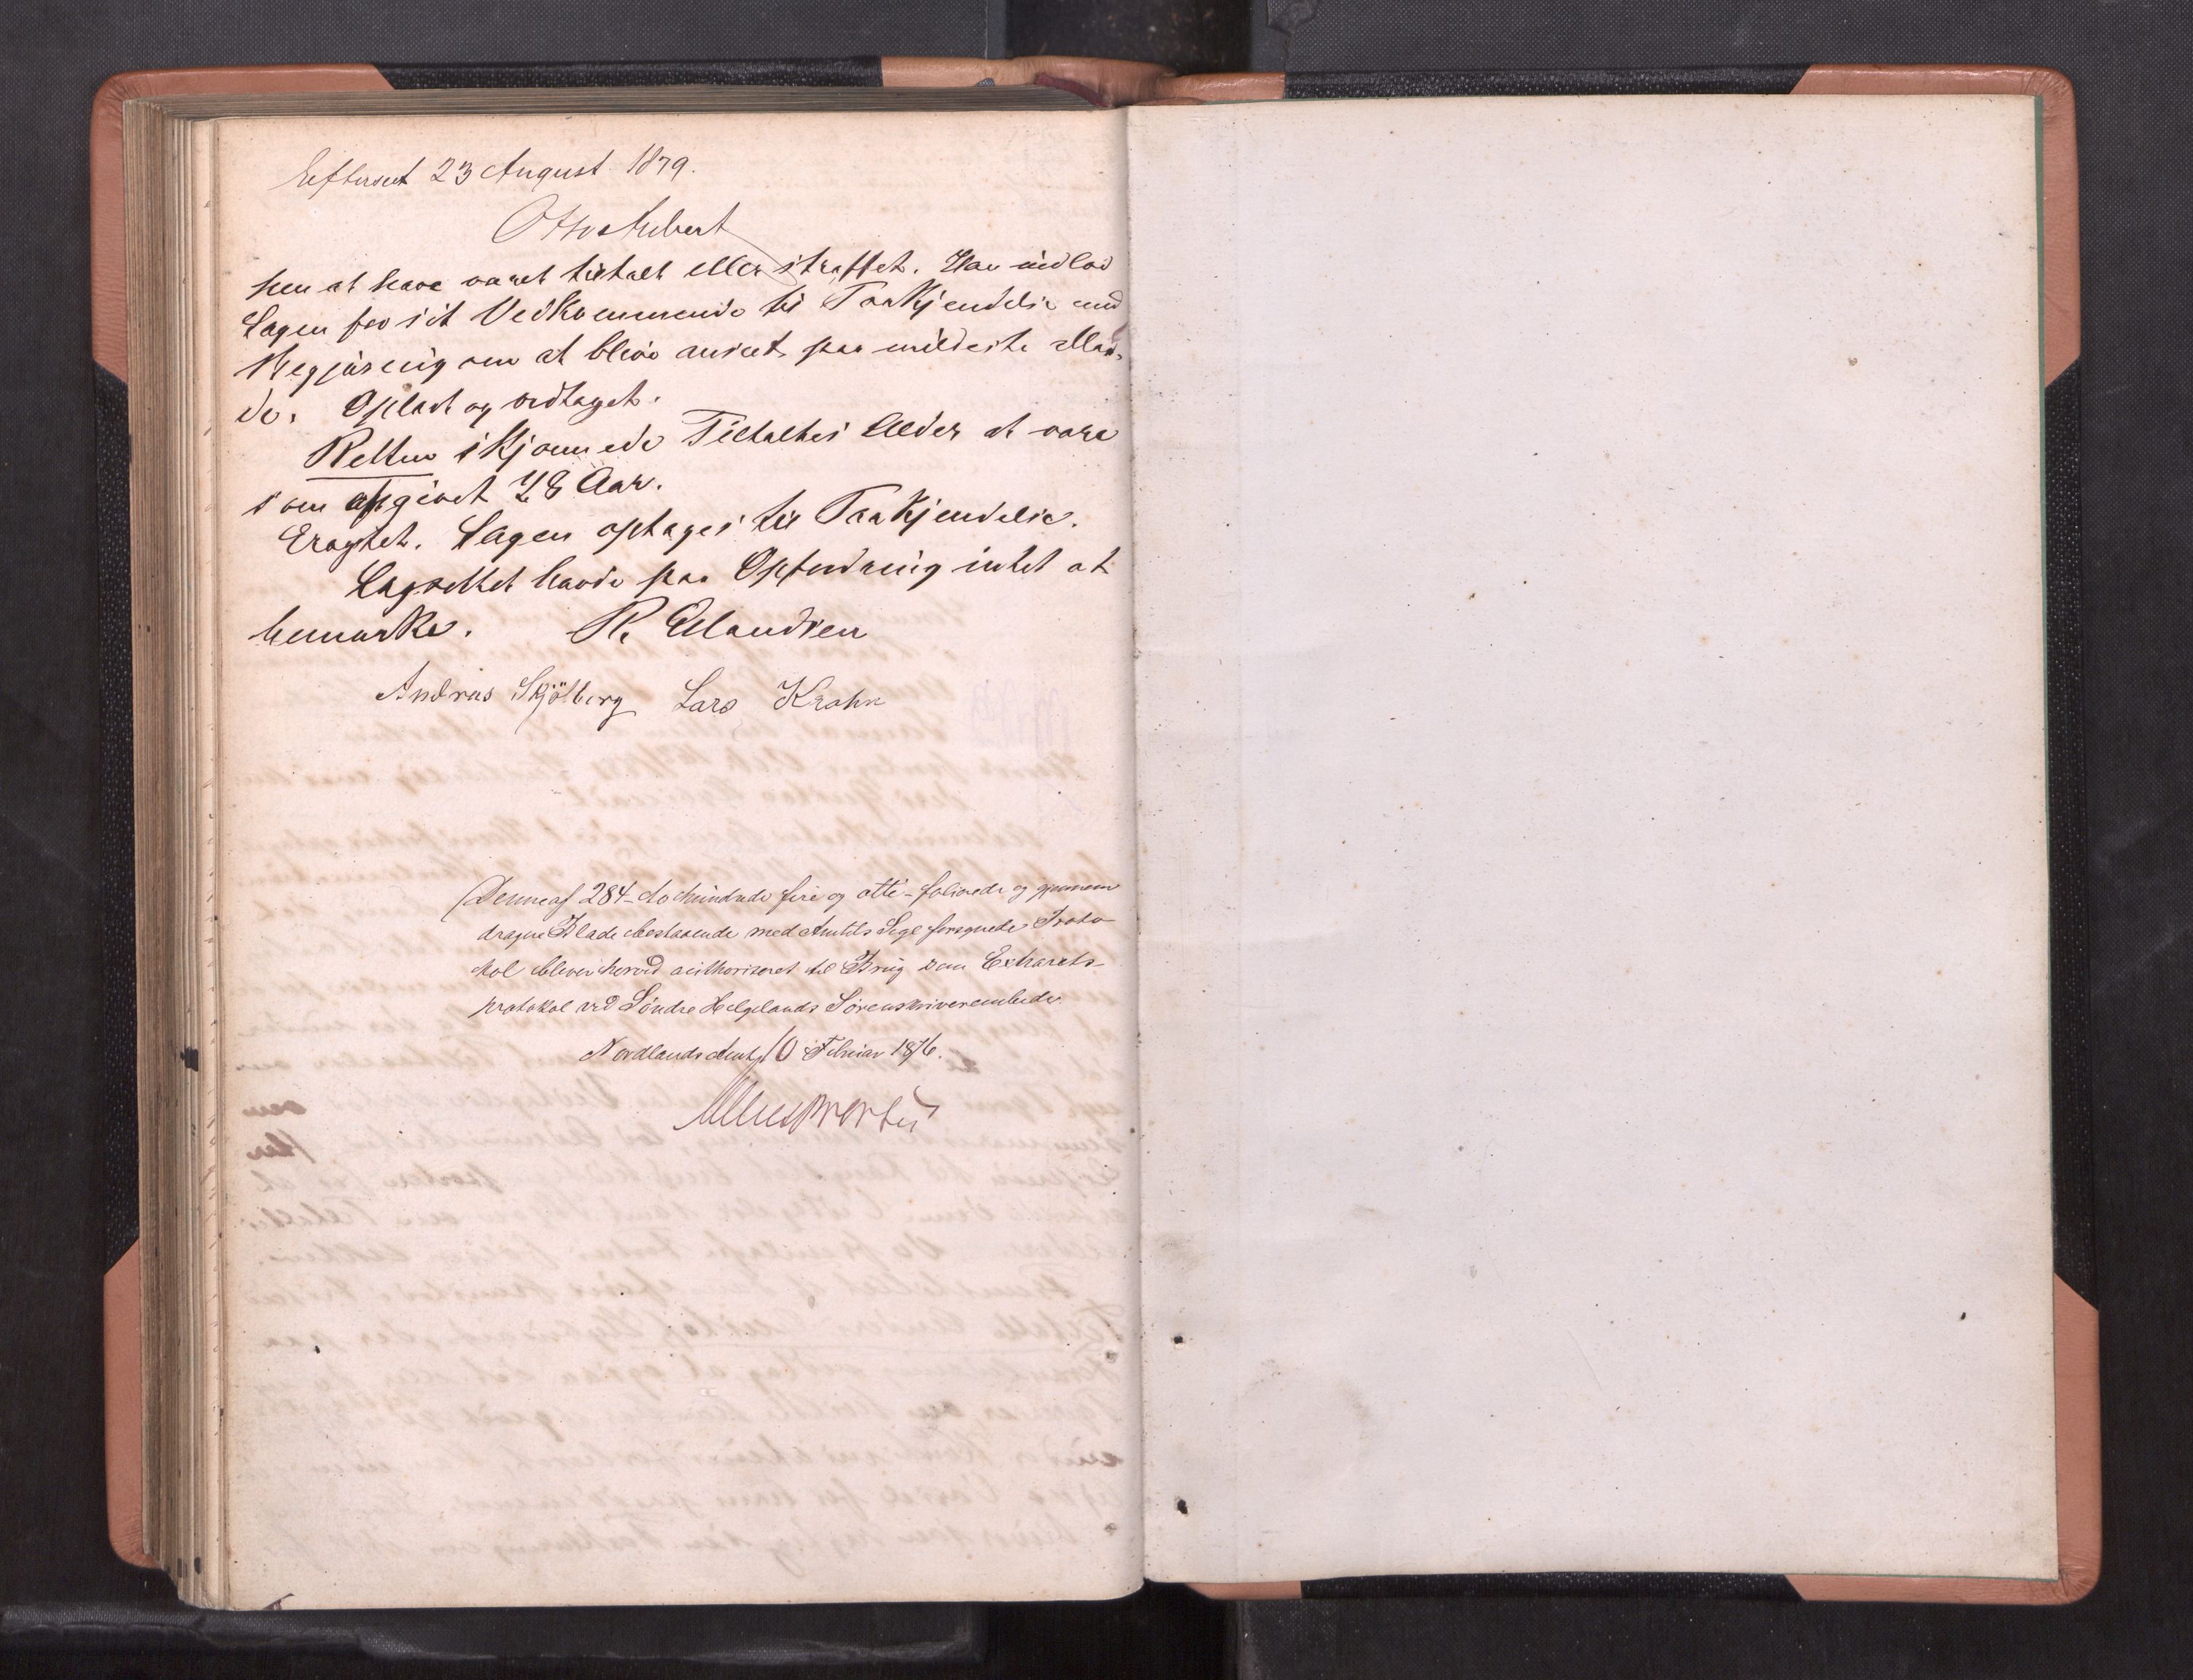 Efterseet 23 August 1879.
Otto Aubert
hen at have været tiltalt eller straffet. Han indlod
Sagen for sit Vedkommende til Paakjendelse med
Begjæring om at blive anseet paa mildeste Maa-
de. Oplæst og vedtaget.
Retten skjønnede Tiltaltes Alder at være
som opgivet 28 Aar.
Eragtet. Sagen optages til Paakjendelse.
Lagrettet havde paa Opfordring intet at
bemærke. R.
Andreas Skjölberg Lars Krahn
Denne af 284 - to hundrede fire og otti - folierede og gjennem
dragne Blade bestaaende med Amtets Segl forsynede Proto
kol bliver herved authoriseret til Brug som Extrarets-
protokol ved Söndre Helgelands Sorenskriverembede.
Nordlands Amt 10 Februar 1876.